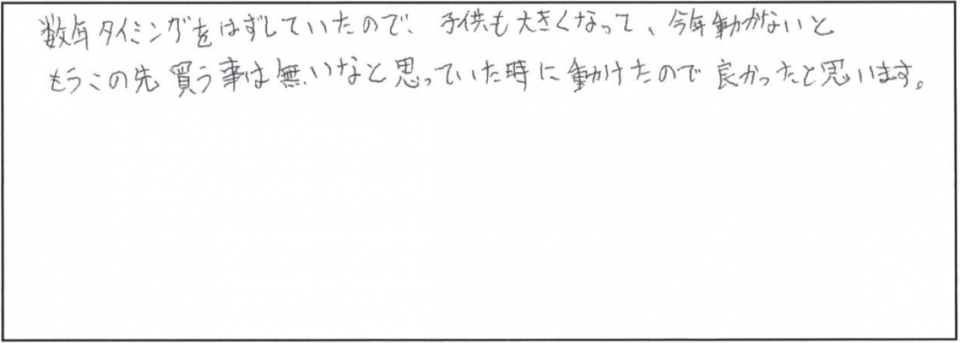 数年タイミングをはずしていたので、子供も大きくなって、今年動かないと
もうこの先買う事は無いなと思っていた時に動けたので良かったと思います。